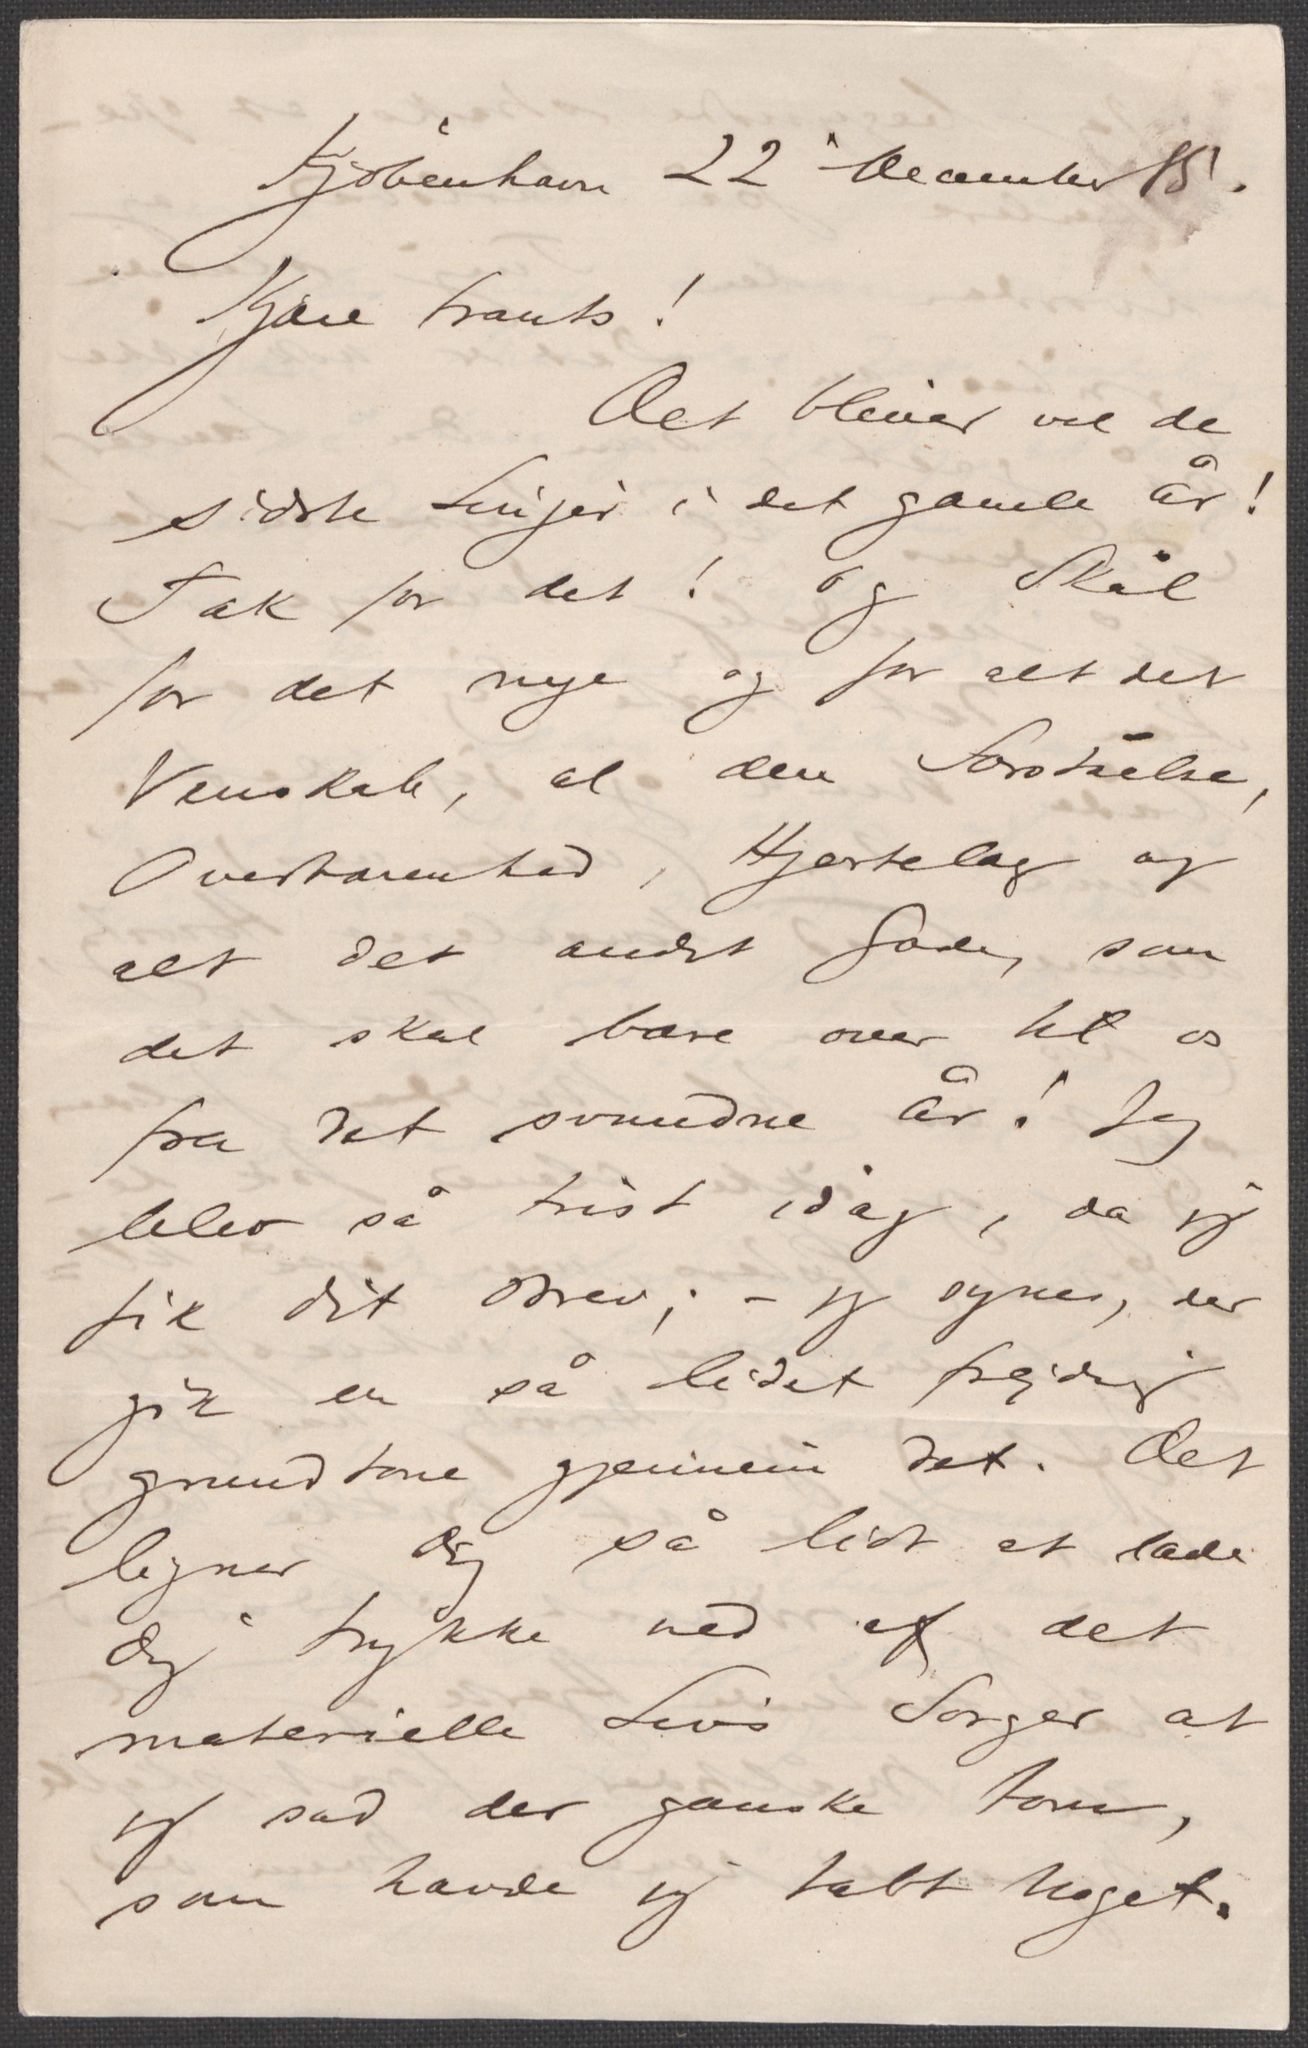 Kjöbenhavn 22 December 85.
Kjære Frants!
Det bliver vel de
sidste Linjer i det gamle År!
Tak for det! Og Skål
for det nye og for alt det
Venskab, al den Forståelse,
Overbærenhed, Hjertelag og
alt det andet Gode, som
det skal bære over til os
fra det svundne År! Jeg
blev så trist idag, da jeg
fik dit Brev; – jeg synes, der
gik en så lidet frejdig
grundtone gjennem det. Det
ligner dig så lidt at lade
dig trykke ned af det
materielle Livs Sorger at
jeg sad der ganske tom,
som havde jeg tabt Noget.